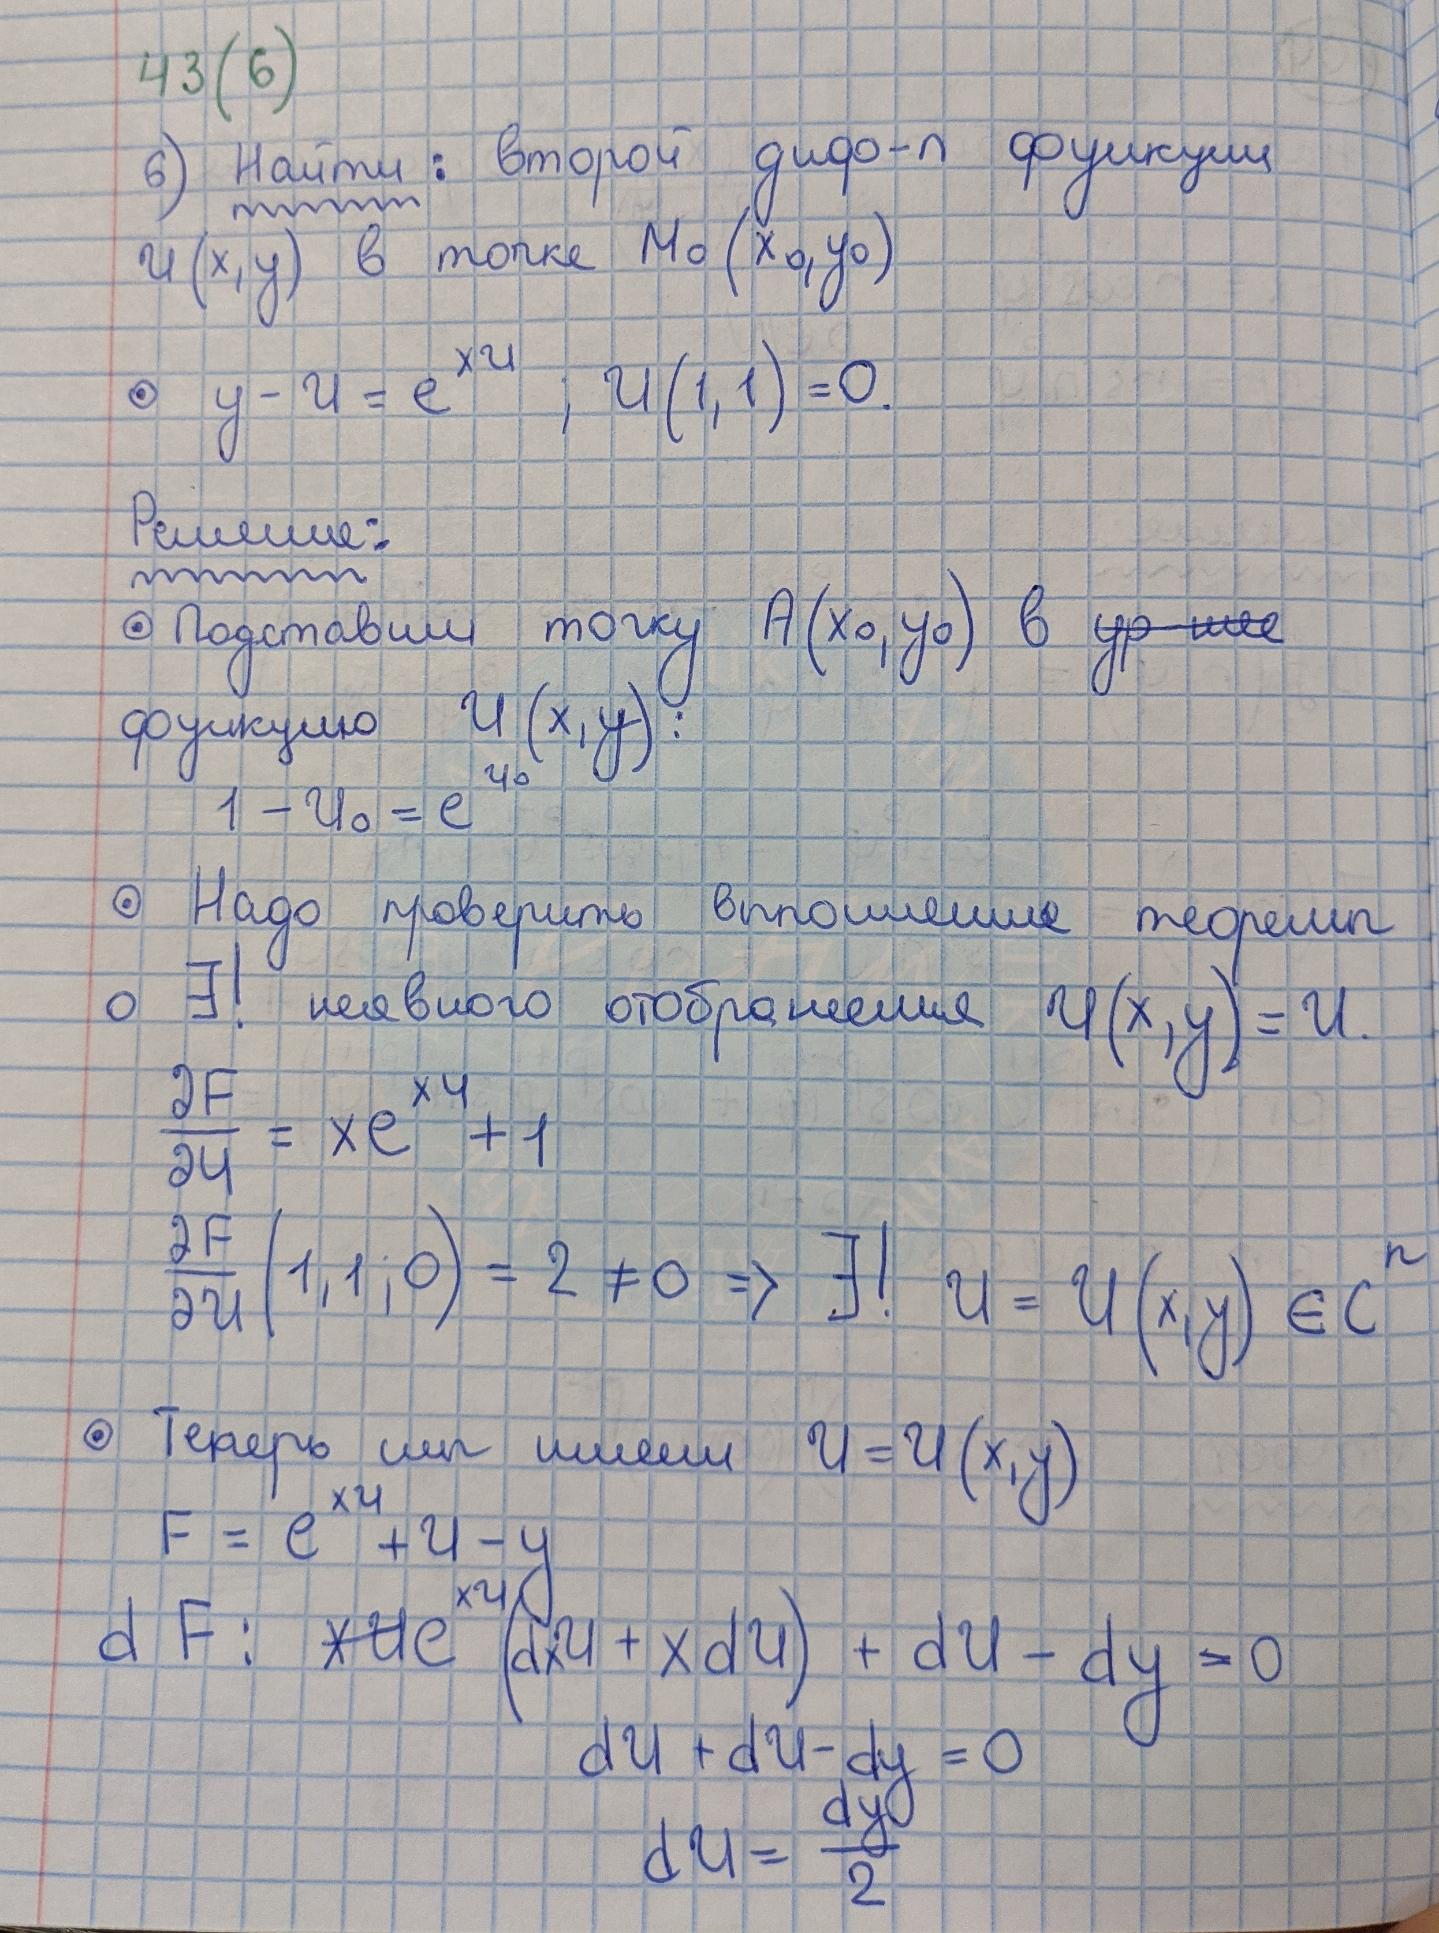 43(б)
б) Найти: второй диф-л функции
U(x,y) в точке M₀(x₀,y₀)
⊙ y - U = e^{xU} ; U(1,1) = 0.
Решение:
⊙ Подставим точку A(x₀,y₀) в ур-ние
функцию U(x,y):
1 - U₀ = e^{U₀}
⊙ Надо проверить выполнение теоремы
о ∃! неявного отображения U(x,y) = U.
∂F/∂U = xe^{xU} + 1
∂F/∂U (1,1;0) = 2 ≠ 0 => ∃! U = U(x,y) ∈ Cⁿ
⊙ Теперь мы имеем U = U(x,y)
F = e^{xU} + U - y
dF: xUe^{xU}(dxU + xdU) + dU - dy = 0
dU + dU - dy = 0
dU = dy/2